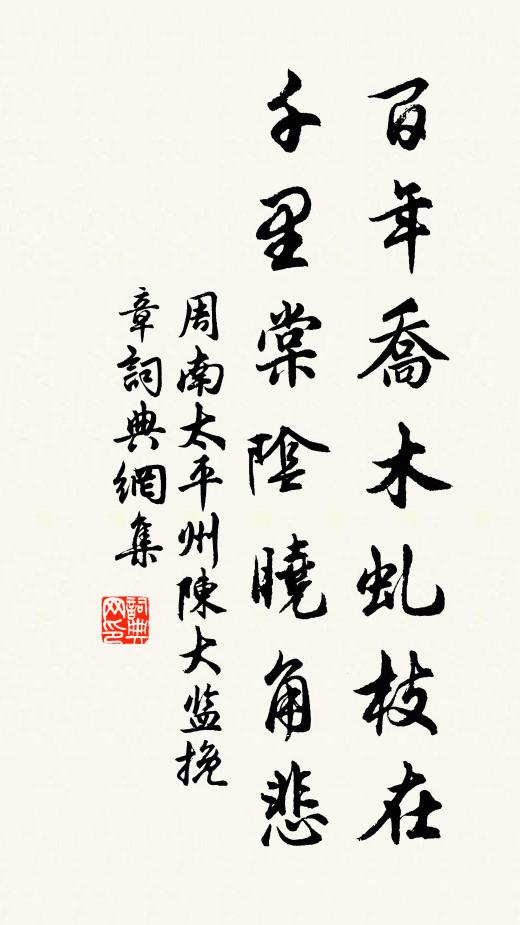 百年喬木虬枝在
千里棠陰曉角悲
周南太平州陳大监挽
章詞典網集
詞典網印